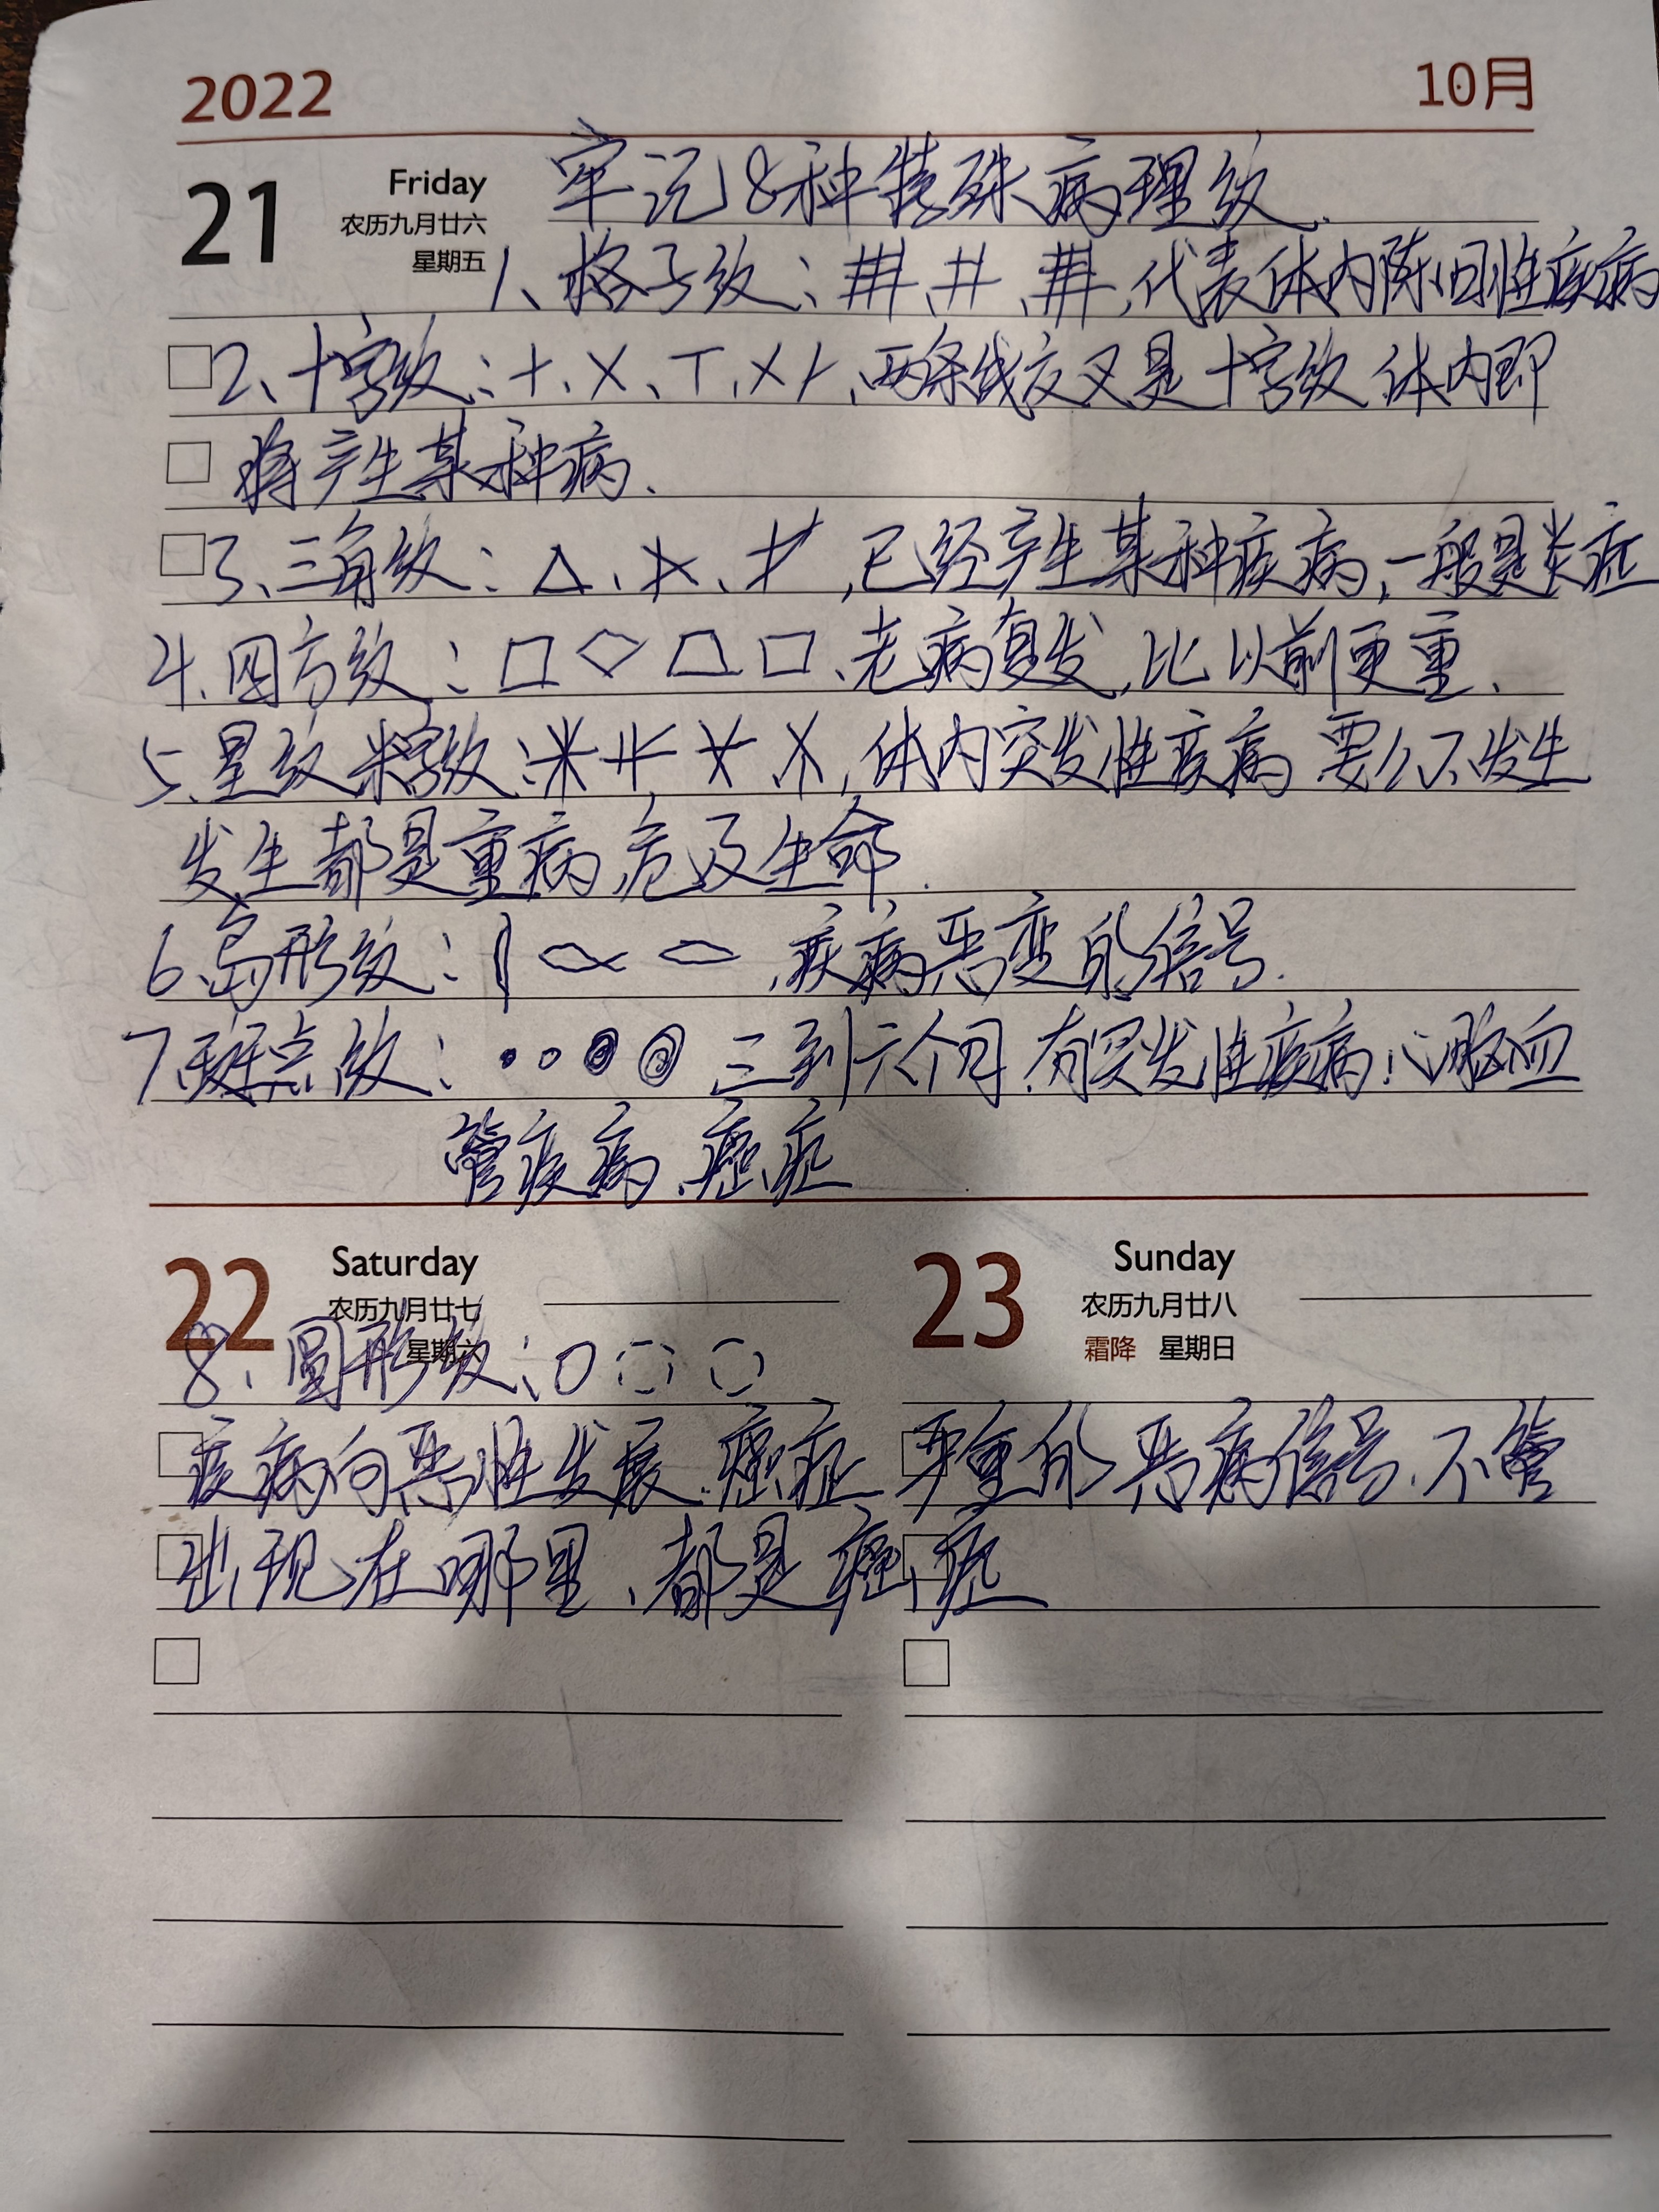 2022 10月
21 Friday
农历九月廿六
星期五
牢记8种特殊病理纹.
1、格子纹:井、井、井,代表体内陈旧性疾病
2、十字纹:+、×、T、×、两条线交叉是十字纹 体内即
将产生某种病.
3、三角纹:△、已经产生某种疾病,一般是炎症
4、四方纹:□◇□、老病复发,比以前更重、
5、星纹 米字纹:米 体内突发性疾病 要么不发生
发生都是重病,危及生命.
6、岛形纹:疾病恶变的信号.
7、斑点纹:三到六个月.有突发性疾病!心脑血
管疾病、癌症
22 Saturday
农历九月廿七
星期六
8、圆形纹:○○○
23 Sunday
农历九月廿八
霜降 星期日
疾病向恶性发展.癌症 严重的恶病信号.不管
出现在哪里、都是癌症